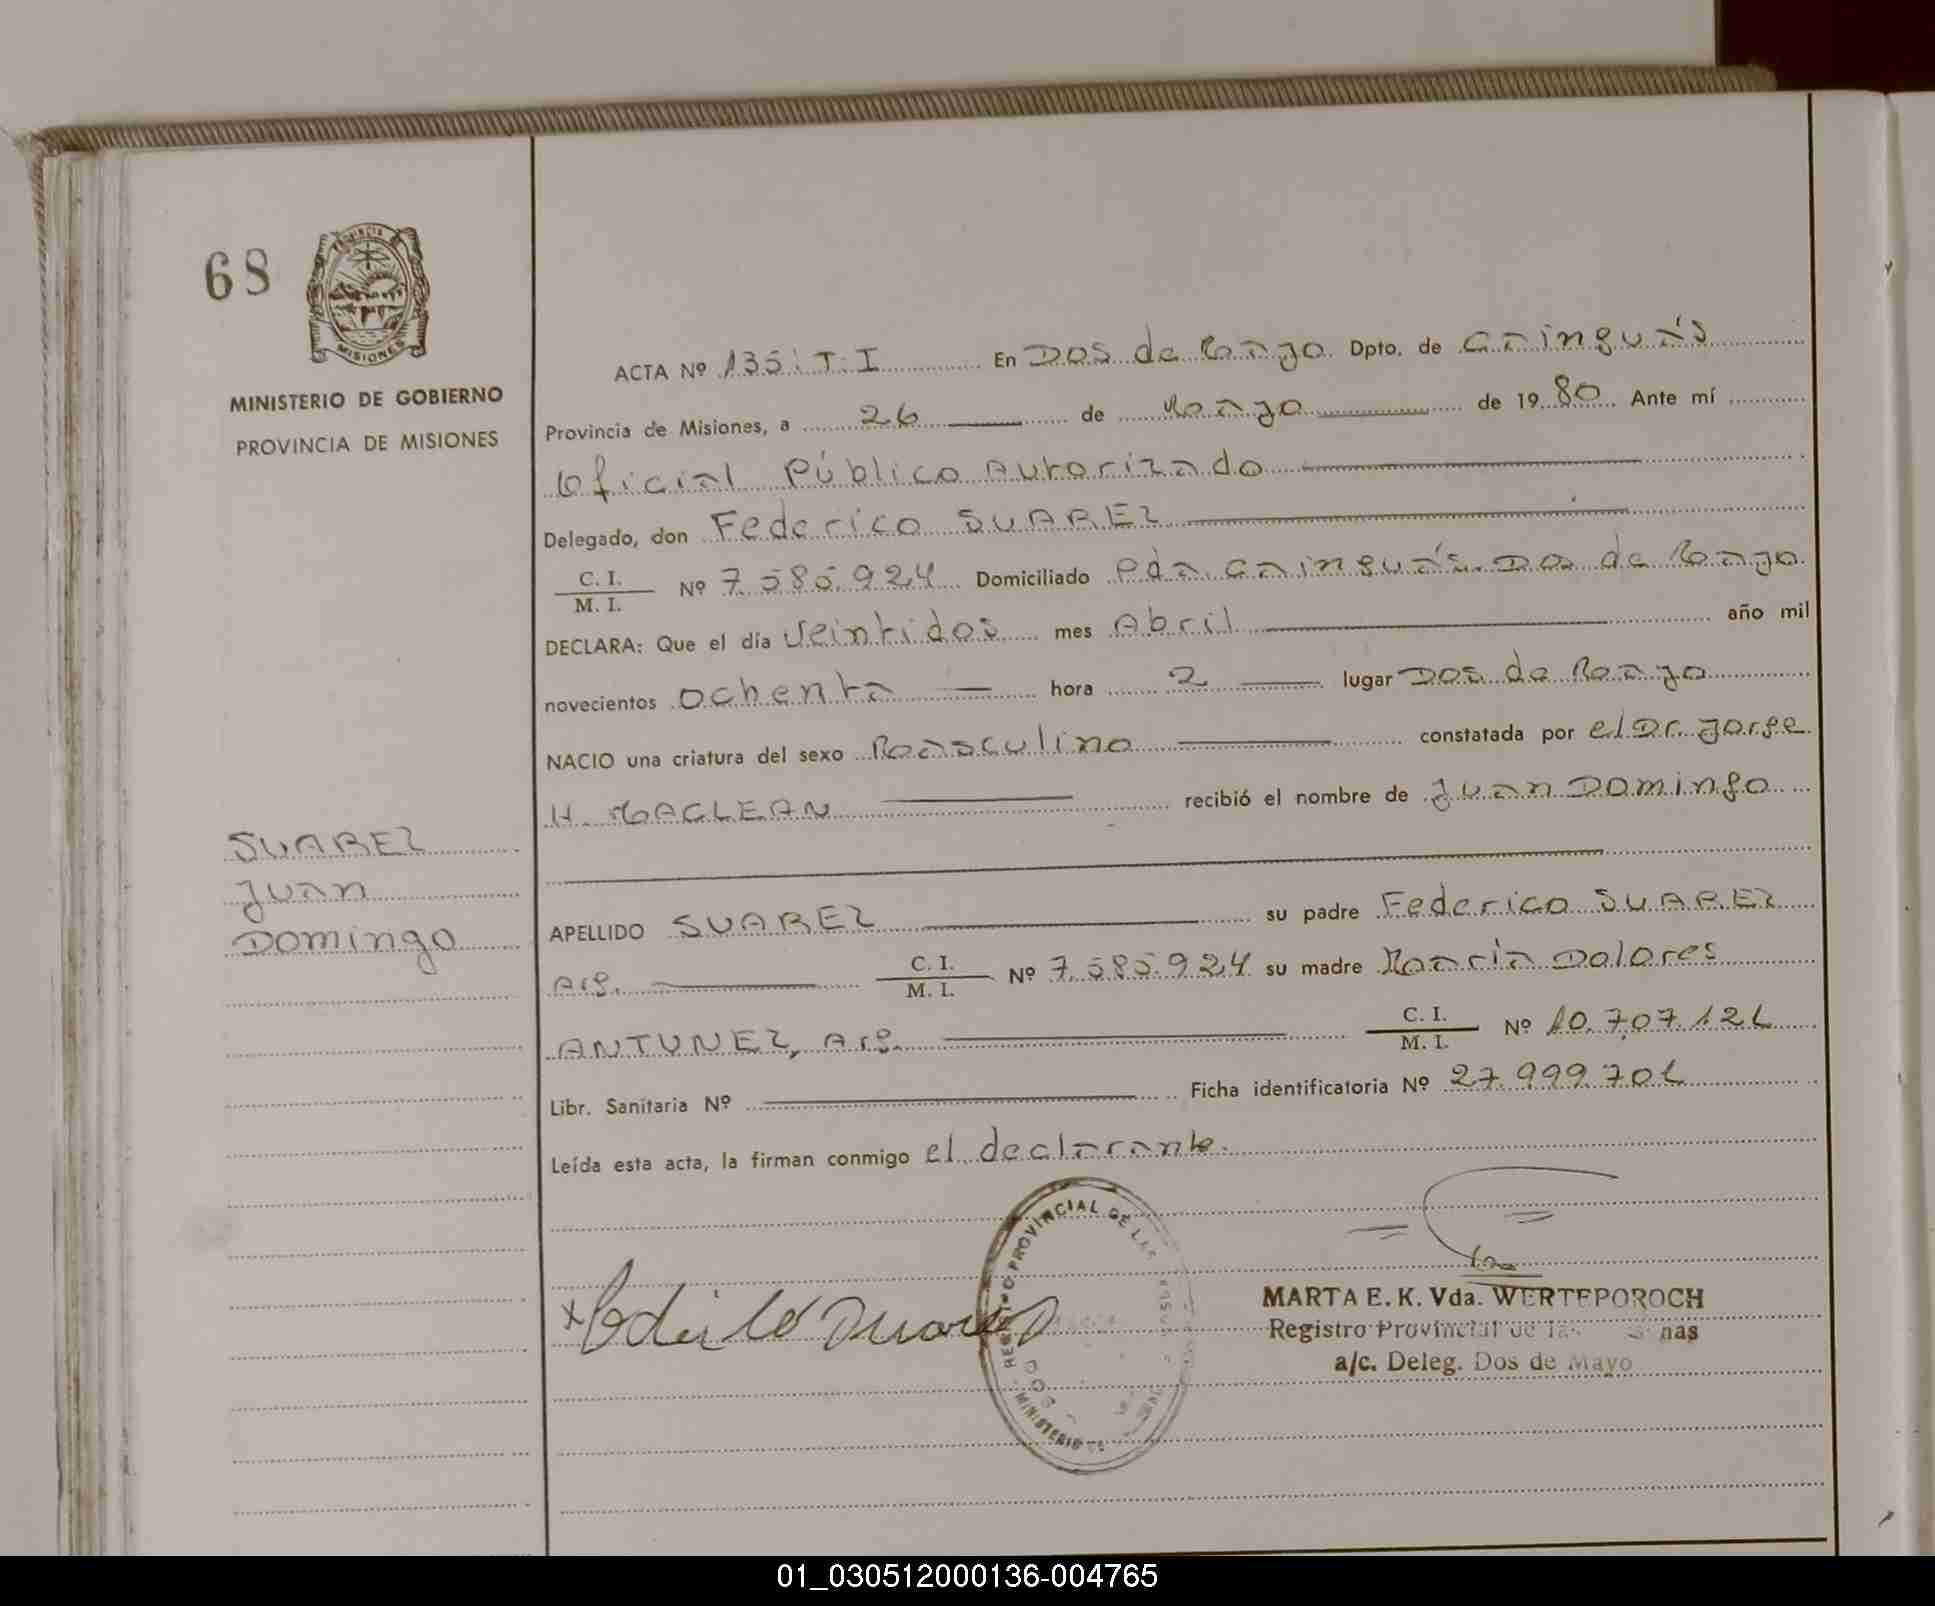 68
PROVINCIA
MISIONES
MINISTERIO DE GOBIERNO
PROVINCIA DE MISIONES
ACTA Nº 135: T: I En Dos de Mayo Dpto. de Cainguás
Provincia de Misiones, a 26 de Mayo de 1980. Ante mí
Oficial Público Autorizado
Delegado, don Federico SUAREZ
C. I. / M. I. Nº 7.585.924 Domiciliado Pda. Cainguás. Dos de Mayo
DECLARA: Que el día Veintidos mes Abril año mil
novecientos Ochenta hora 2 lugar Dos de Mayo
NACIO una criatura del sexo Masculino constatada por el Dr. Jorge
H. MACLEAN recibió el nombre de Juan Domingo
SUAREZ
Juan
Domingo
APELLIDO SUAREZ su padre Federico SUAREZ
Arg. C. I. / M. I. Nº 7.585.924 su madre Maria Dolores
ANTUNEZ, Arg. C. I. / M. I. Nº 10.707.121
Libr. Sanitaria Nº Ficha identificatoria Nº 27.999.701
Leída esta acta, la firman conmigo el declarante.
REGISTRO PROVINCIAL DE LAS
MINISTERIO DE
MARTA E. K. Vda. WERTEPOROCH
Registro Provincial de las
a/c. Deleg. Dos de Mayo
01_030512000136-004765